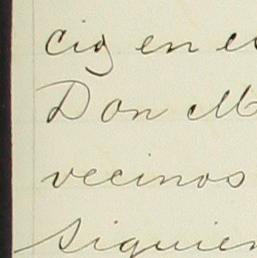 cio en e
Don M
vecinos
siguien